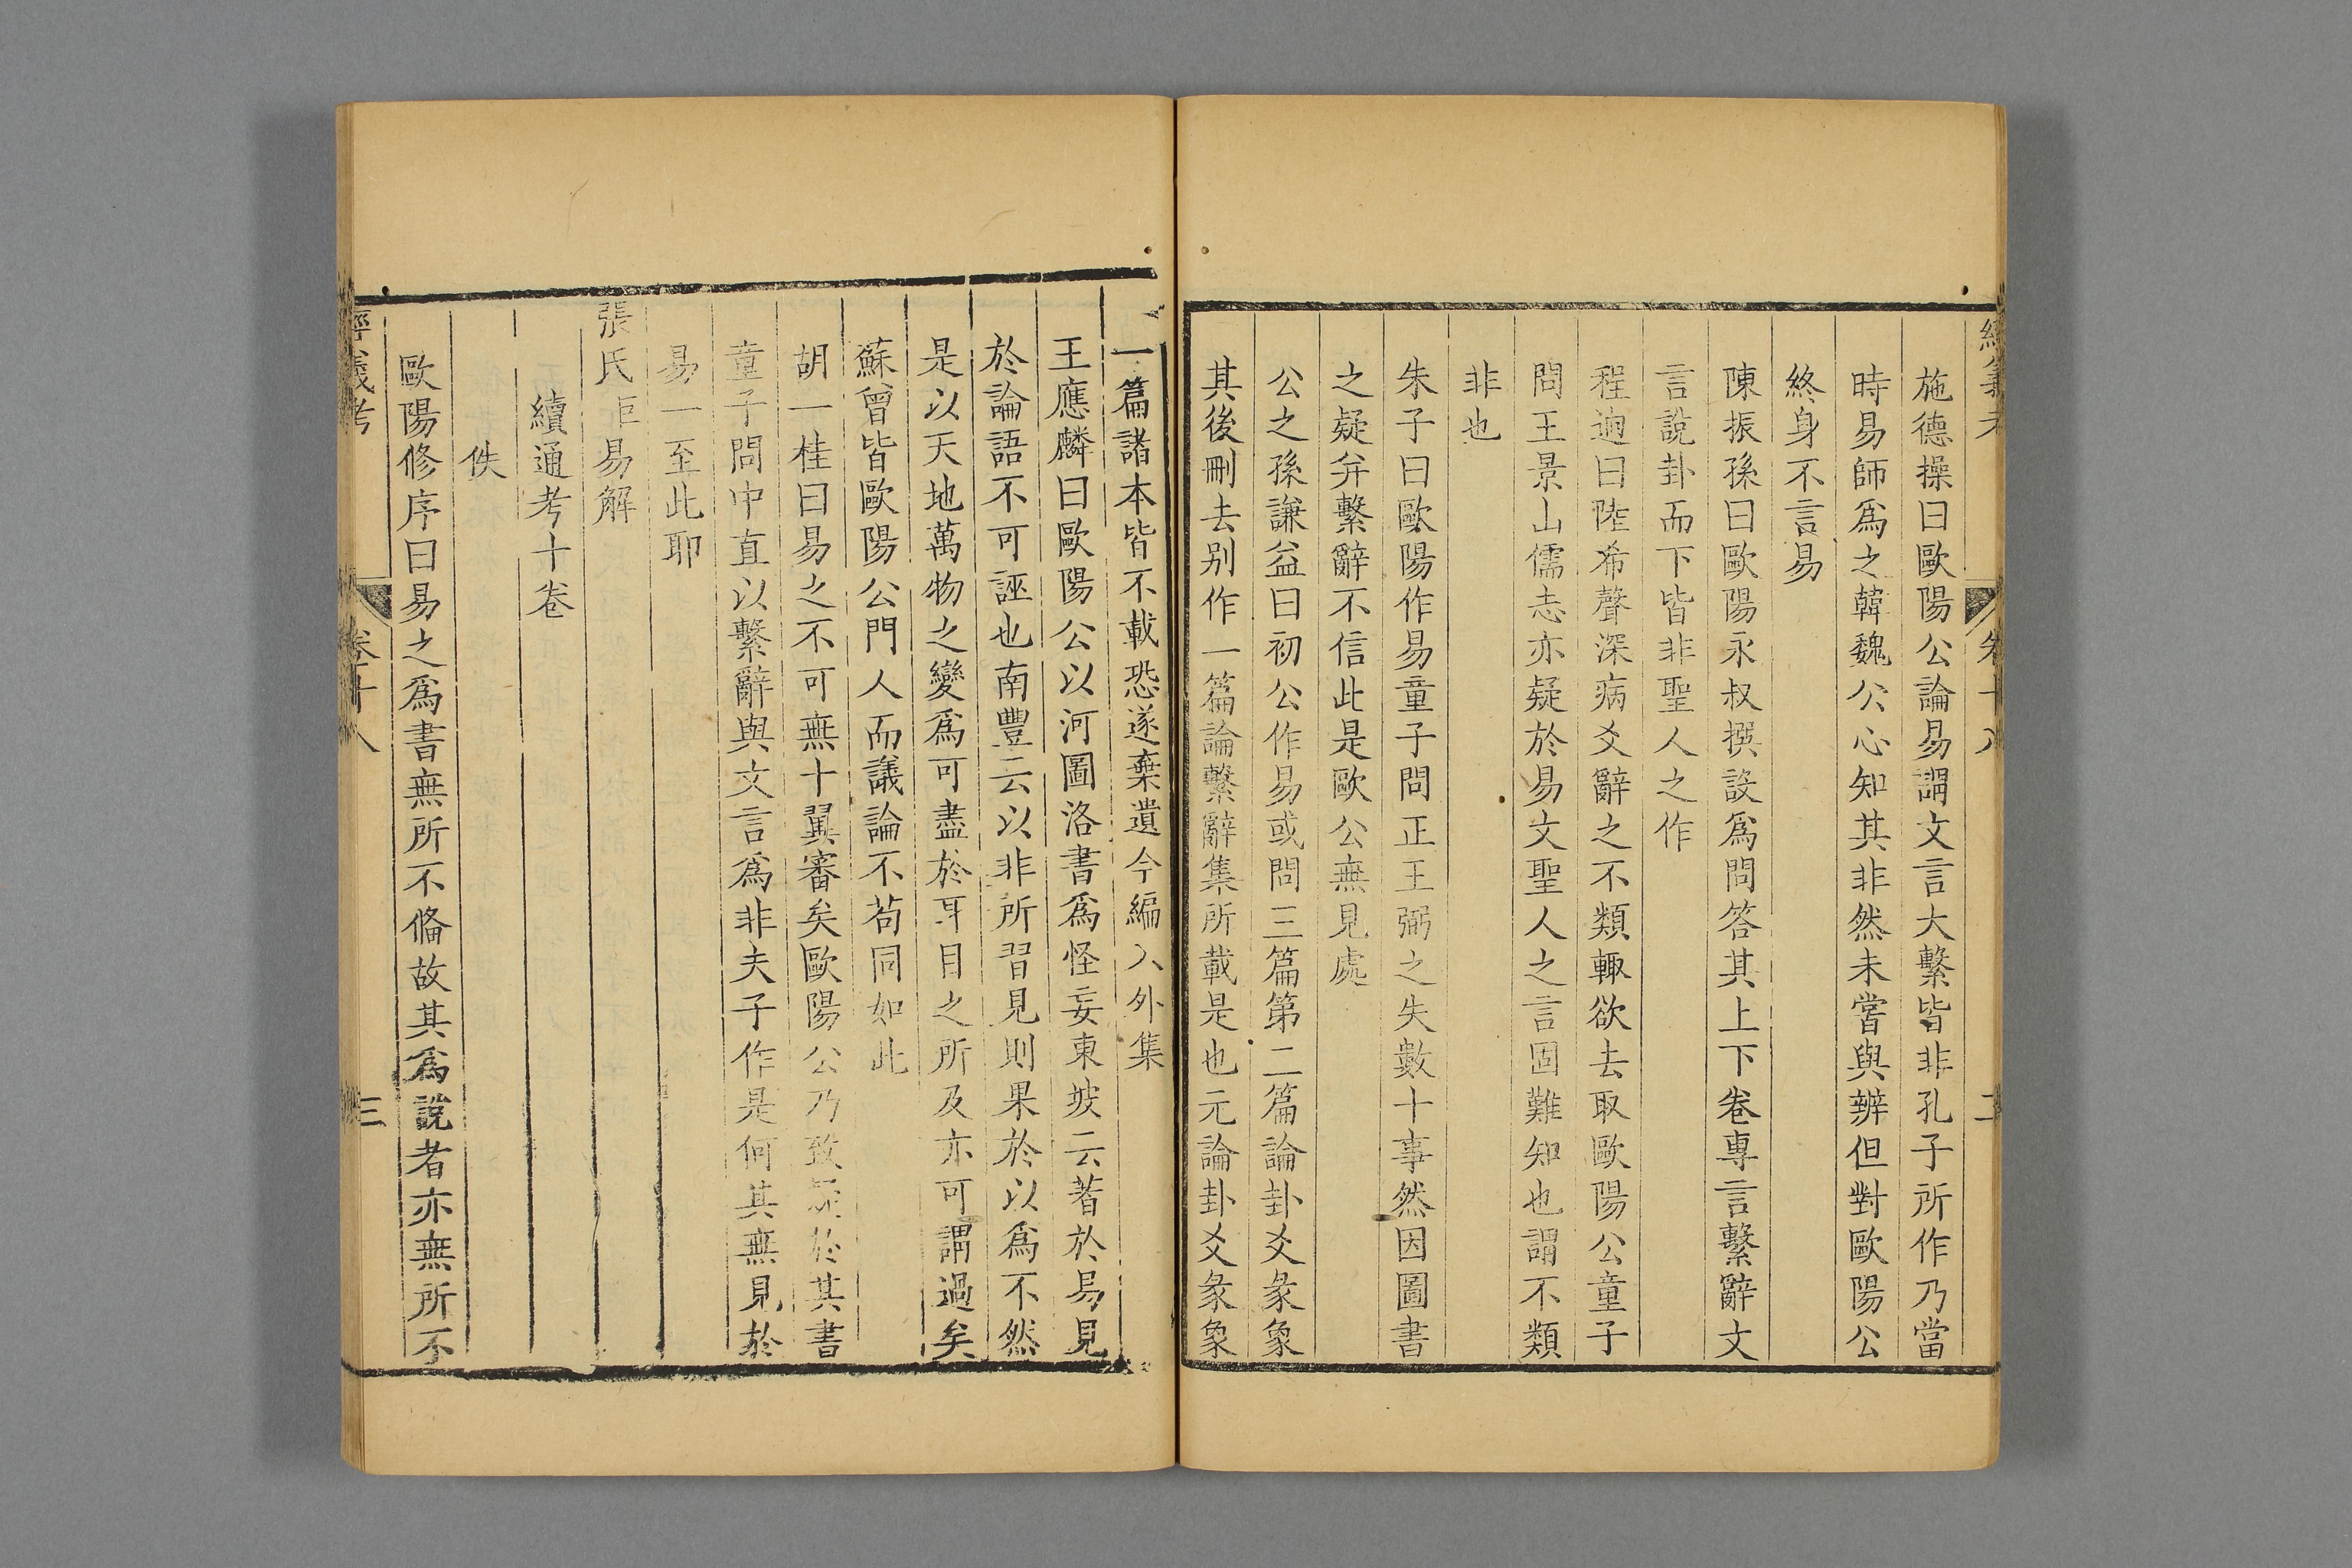 經義考
卷十八
二
施德操曰歐陽公論易謂文言大繫皆非孔子所作乃當
時易師爲之韓魏公心知其非然未嘗與辨但對歐陽公
終身不言易
陳振孫曰歐陽永叔撰設爲問答其上下卷專言繫辭文
言說卦而下皆非聖人之作
程迥曰陸希聲深病爻辭之不類輙欲去取歐陽公童子
問王景山儒志亦疑於易文聖人之言固難知也謂不類
非也
朱子曰歐陽作易童子問正王弼之失數十事然因圖書
之疑并繫辭不信此是歐公無見處
公之孫謙益曰初公作易或問三篇第二篇論卦爻彖象
其後刪去别作一篇論繫辭集所載是也元論卦爻彖象
一篇諸本皆不載恐遂棄遺今編入外集
王應麟曰歐陽公以河圖洛書爲怪妄東坡云著於易見
於論語不可誣也南豐云以非所習見則果於以爲不然
是以天地萬物之變爲可盡於耳目之所及亦可謂過矣
蘇曾皆歐陽公門人而議論不苟同如此
胡一桂曰易之不可無十翼審矣歐陽公乃致疑於其書
童子問中直以繫辭與文言爲非夫子作是何其無見於
易一至此耶
張氏㠪易解
續通考十卷
佚
歐陽修序曰易之爲書無所不備故其爲說者亦無所不
經義考
卷十八
三